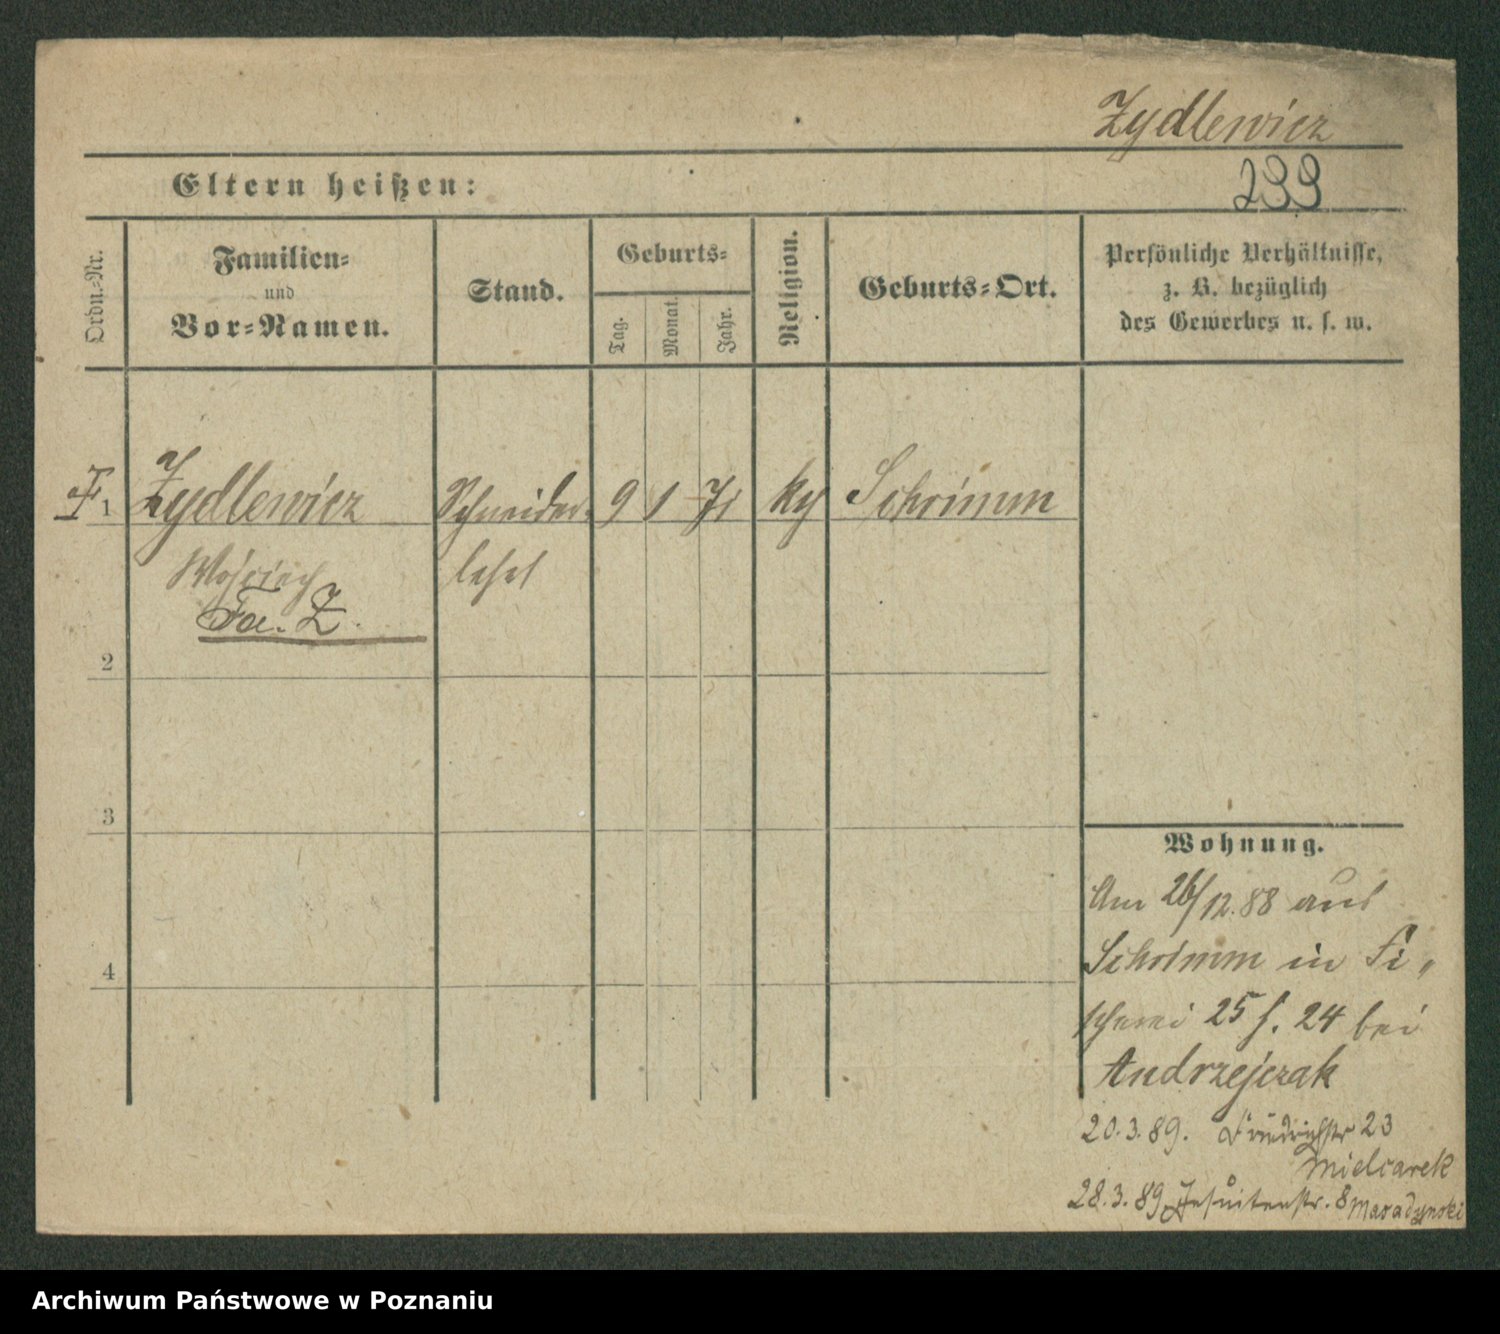 Zydlewicz
Eltern heißen:
233
Ordn.-Nr.
Familien-
und
Vor-Namen.
Stand.
Geburts-
Tag.
Monat.
Jahr.
Religion.
Geburts-Ort.
Persönliche Verhältnisse,
z. B. bezüglich
des Gewerbes u. s. w.
1 Zydlewicz Schneider- 9 1 71 Schrimm
Wojciech
Fa. Z.
2
3
4
Wohnung.
Am 26/12.88 aus
Schrimm in Fi-
scherei 25 f. 24 bei
Andrzejczak
20.3.89. Friedrichstr 23
Mielcarek
28.3.89 Jesuitenstr. 8 Maradynski
Archiwum Państwowe w Poznaniu